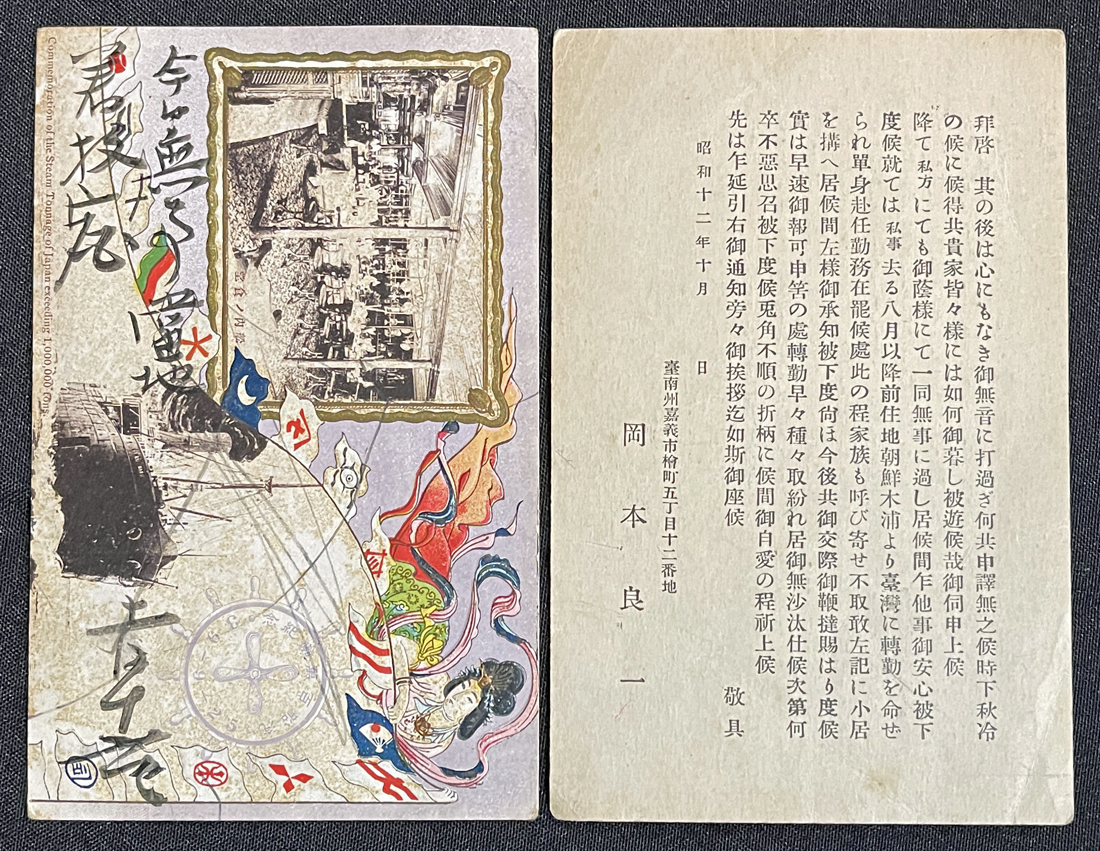 今日無事當地
着投宿
十一月廿二
Commemoration of the Steam Tonnage of Japan exceeding 1,000,000 tons.
拜啓 其の後は心にもなき御無音に打過ぎ何共申譯無之候時下秋冷
の候に候得共貴家皆々樣には如何御暮し被遊候哉御伺申上候
降て私方にても御蔭樣にて一同無事に過し居候間乍他事御安心被下
度候就ては私事去る八月以降前住地朝鮮木浦より臺灣に轉勤を命ぜ
られ單身赴任勤務在罷候處此の程家族も呼び寄せ不取敢左記に小居
を搆へ居候間左樣御承知被下度尙は今後共御交際御鞭撻賜はり度候
實は早速御報可申筈の處轉勤早々種々取紛れ居御無沙汰仕候次第何
卒不惡思召被下度候兎角不順の折柄に候間御自愛の程祈上候
先は乍延引右御通知旁々御挨拶迄如斯御座候
敬具
昭和十二年十月 日
臺南州嘉義市檜町五丁目十二番地
岡本良一